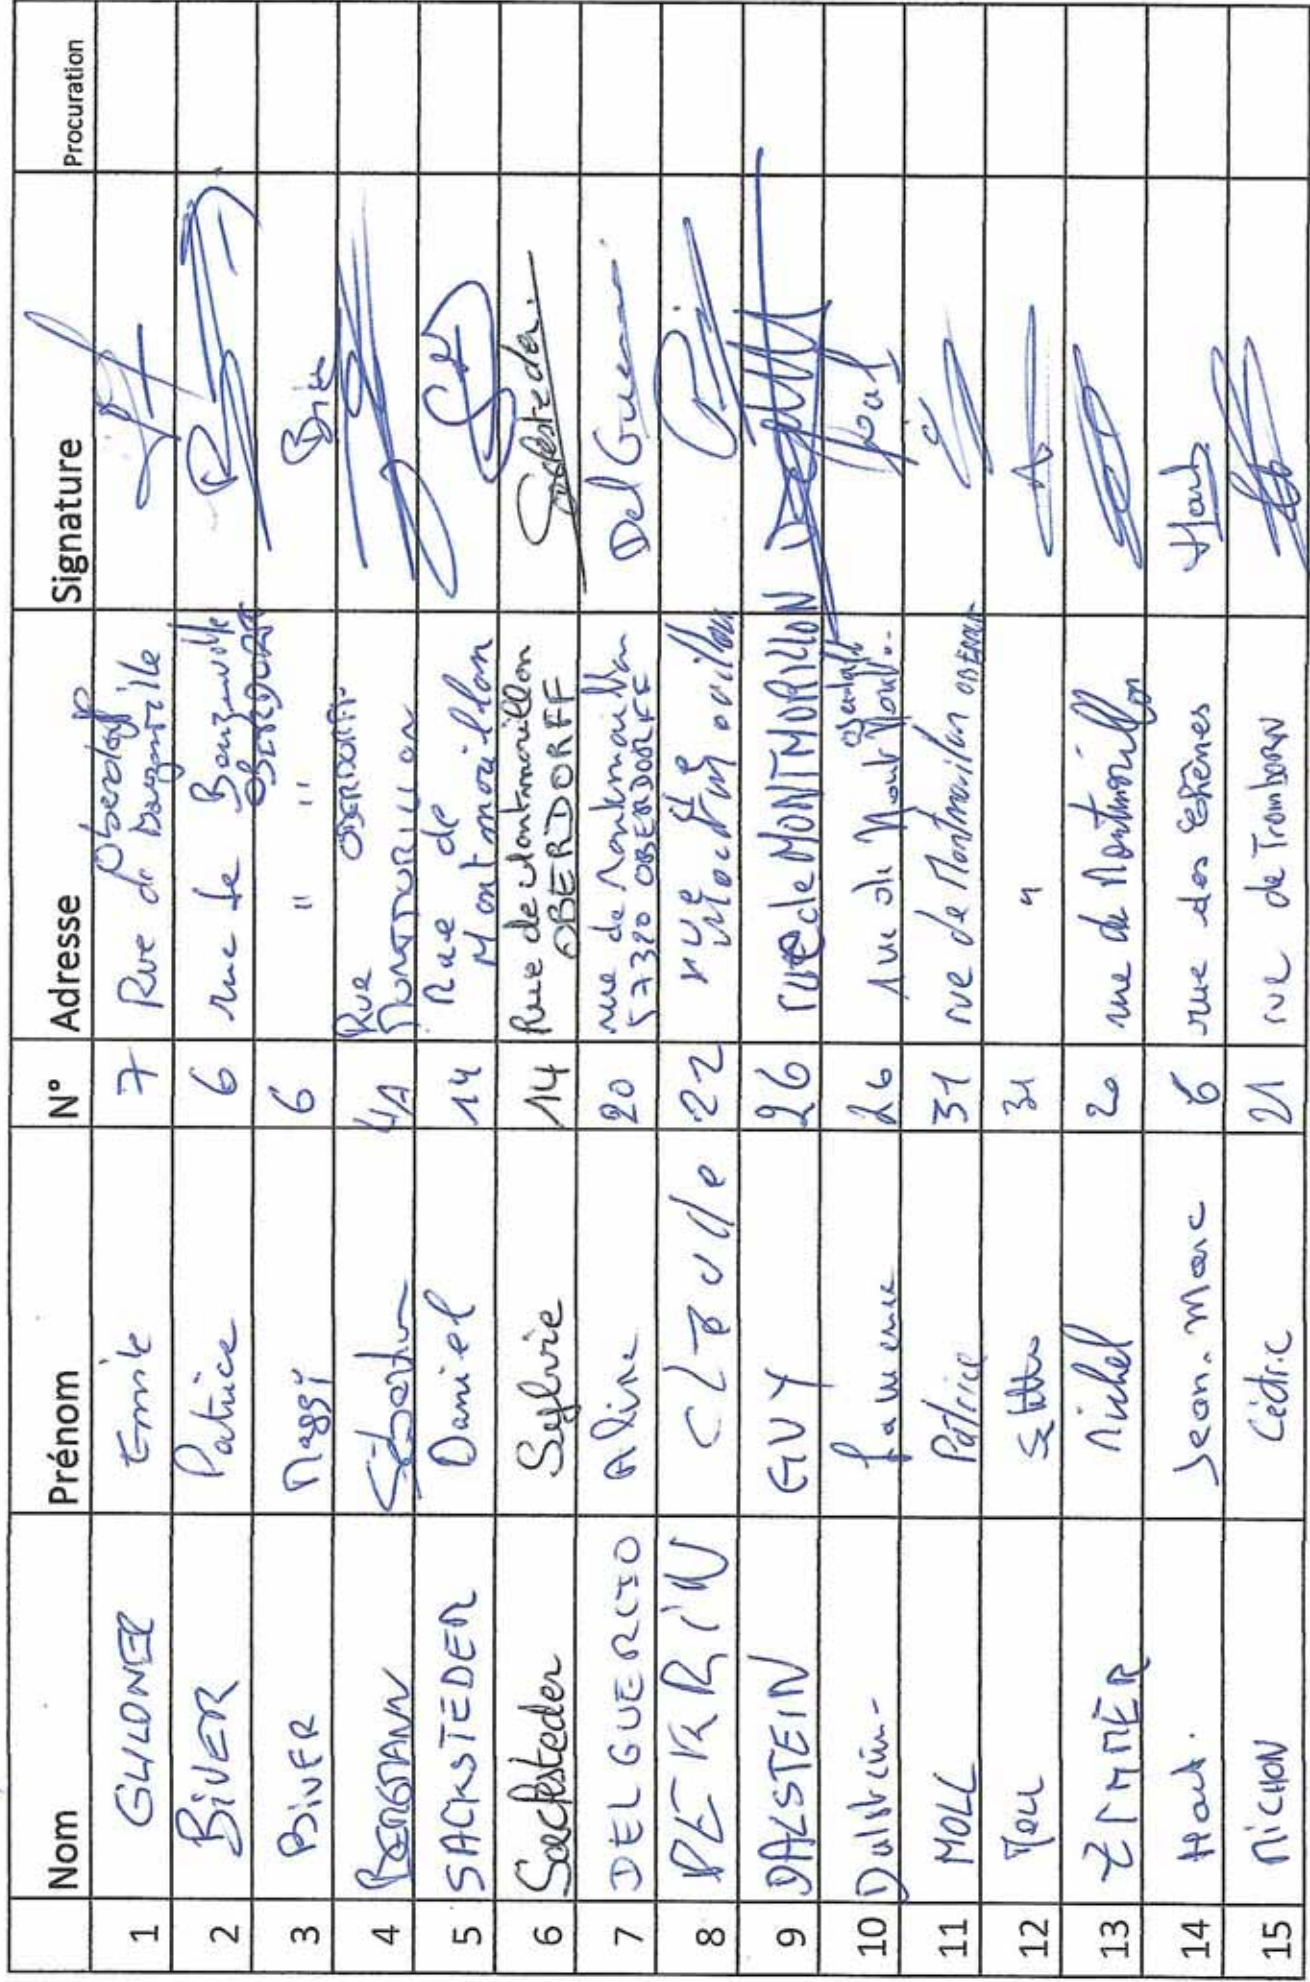 Nom Prénom N° Adresse Signature Procuration
1 Emile 7 Rue de Bouzonville Oberdorff
2 BIVER Patrice 6 rue de Bouzonville OBERDORFF
3 BIVER Maggy 6 " "
4 BERGMANN Sébastien 4A Rue MONTMORILLON OBERDORFF
5 SACKSTEDER Daniel 14 Rue de Montmorillon
6 Sacksteder Sylvie 14 Rue de Montmorillon OBERDORFF Sacksteder
7 DEL GUERCIO Aline 20 rue de Montmorillon 57320 OBERDORFF Del Guercio
8 PERRIN CLAUDE 22 rue
9 DALSTEIN GUY 26 rue de MONTMORILLON
10 Dalstein Laurence 26 rue de
11 MOLL Patrice 31 rue de Montmorillon OBERDORFF
12 Moll 31 "
13 ZIMMER Michel 20 rue de Montmorillon
14 Jean-Marc 6 rue des
15 MICHON Cédric 21 rue de Tromborn